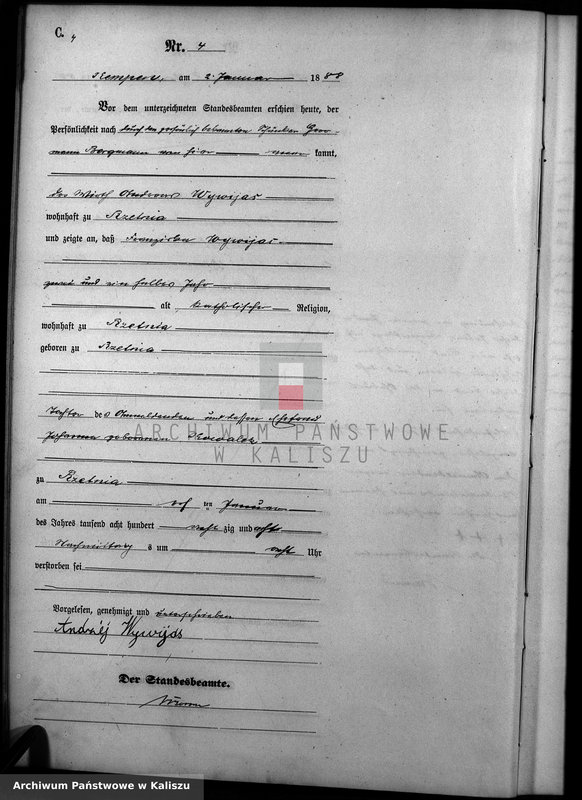 C. 4
Nr. 4
Kempen, am 2. Januar 1888
Vor dem unterzeichneten Standesbeamten erschien heute, der
Persönlichkeit nach durch den persönlich bekannten
Bergmann von hier kannt,
der Wirth Andreas Wywijas
wohnhaft zu Rzetnia
und zeigte an, daß Franziska Wywijas
zwei und ein halbes Jahr
alt, katholischer Religion,
wohnhaft zu Rzetnia
geboren zu Rzetnia
Tochter des Anmeldenden und dessen Ehefrau
geborenen Kowalek
ARCHIWUM PAŃSTWOWE
W KALISZU
zu Rzetnia
am ten Januar
des Jahres tausend acht hundert achtzig und acht
Nachmittags um acht Uhr
verstorben sei
Vorgelesen, genehmigt und unterschrieben
Andrzéj Wywijas
Der Standesbeamte.
Archiwum Państwowe w Kaliszu